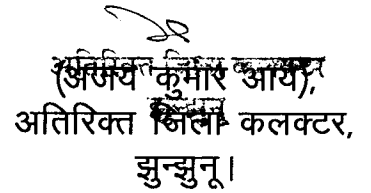 (अजय कुमार आर्य),
अतिरिक्त जिला कलक्टर,
झुन्झुनू।